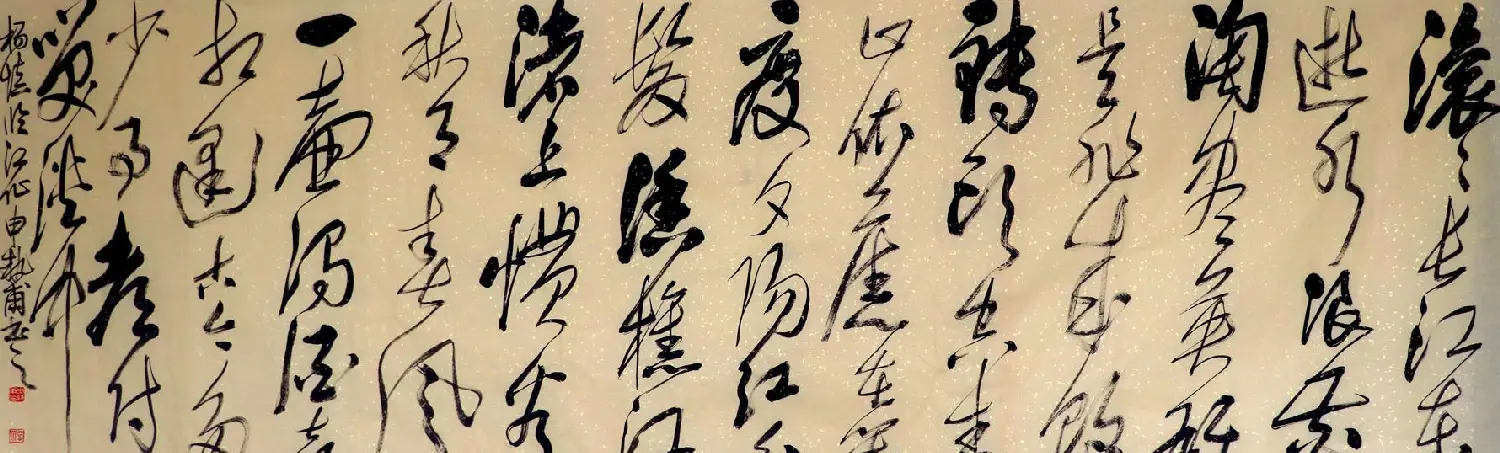 滚々长江东
逝水浪花
淘尽英雄
是非成败
转头空青
山依旧在几
度夕阳红白
发渔樵江
渚上惯看
秋月春风
一壶浊酒喜
相逢古今多
少事都付
笑谈中
杨慎临江仙